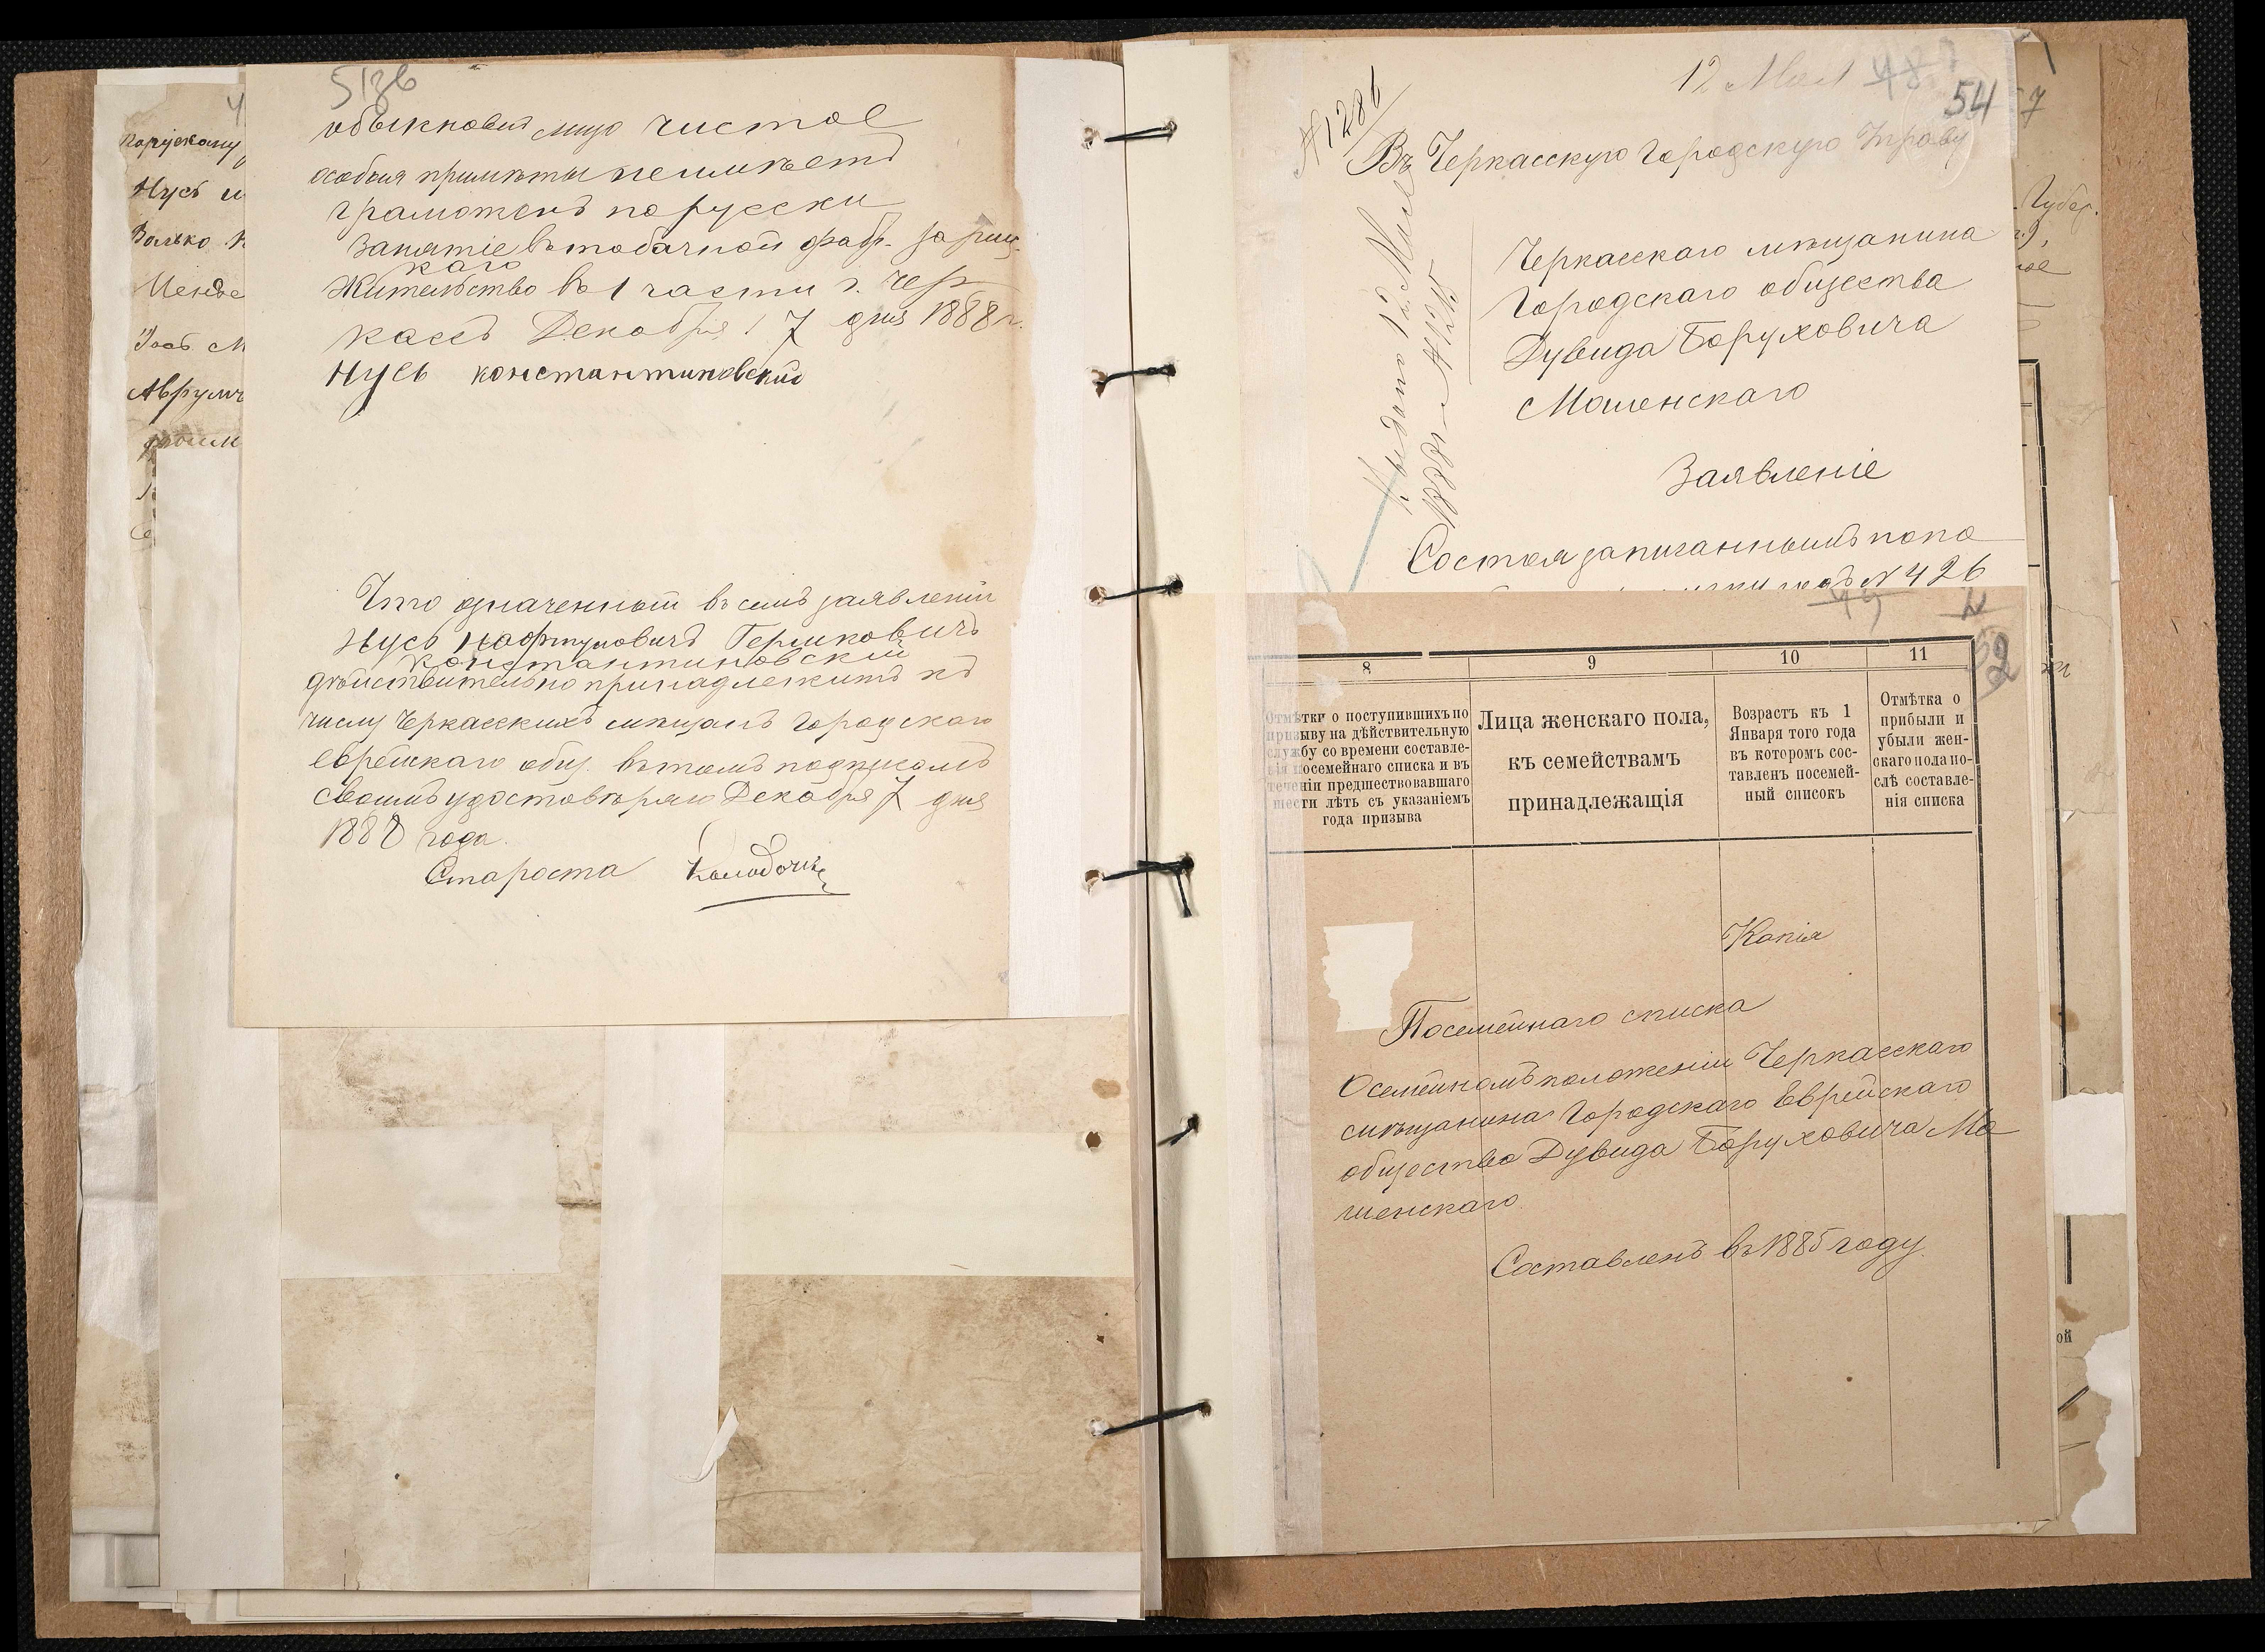 обыкновен лицо чистое
особыя приметы неимѣетъ
грамотенъ порусски
Занятіе втобачной фабр. зариц
каго
Жительство въ 1 части г. Чер
касъ Декабря 7 дня 1888 г.
Нусь константиновский
Что означенный въ семъ заявленіи
Нусь Нафтуловичъ Гершковичъ
Константиновскій
дѣйствительно принадлежитъ къ
числу Черкасскихъ мѣщанъ Городскаго
еврейскаго общ. вътомъ подписомъ
своимъ удостовѣряю Декабря 7 дня
1888 года.
Староста
Нусь
12 Мая
54
№ 1286
Въ Черкасскую Городскую Управу
Черкасскаго мѣщанина
Городскаго общества
Дувида Боруховича
Мошенскаго
Заявленіе
Состоя записаннымъ попо
№ 426
52
8
9
10
11
Отмѣтки о поступившихъ по
призыву на дѣйствительную
службу со времени составле-
нія посемейнаго списка и въ
теченіи предшествовавшаго
шести лѣтъ съ указаніемъ
года призыва
Лица женскаго пола,
къ семействамъ
принадлежащія
Возрастъ къ 1
Января того года
въ которомъ сос-
тавленъ посемей-
ный списокъ
Отмѣтка о
прибыли и
убыли жен-
скаго пола по-
слѣ составле-
нія списка
Копія
Посемейнаго списка
Осемейномъ положеніи Черкасскаго
мѣщанина Городскаго Еврейскаго
общества Дувида Боруховича Мо
шенскаго
Составленъ въ 1885 году.